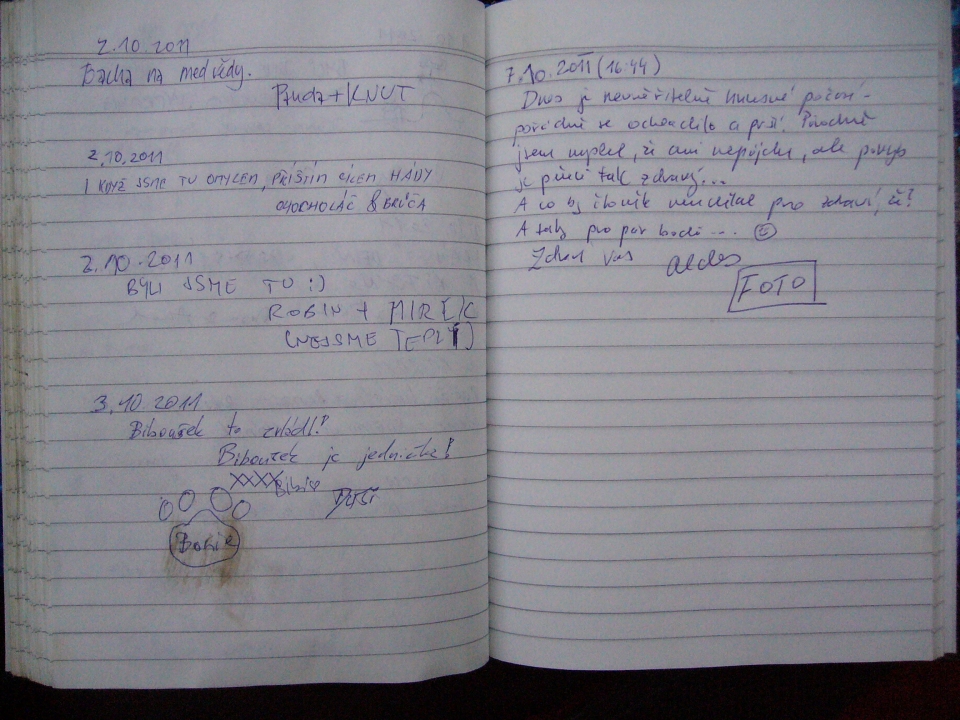 2.10.2011
Bacha na medvědy.
Panda + KNUT
2.10.2011
I KDYŽ JSME TU OMYLEM, PŘÍŠTÍM CÍLEM HÁDY
& BRŮČA
2.10.2011
BYLI JSME TU :)
ROBIN + MIREK
(NEJSME TEPLÝ)
3.10.2011
Biboušek to zvládl!
Biboušek je jednička!
XXXX Bibiš
7.10.2011 (16:44)
Dnes je neuvěřitelně hnusné počasí -
pořádně se ochladilo a prší. Původně
jsem myslel, že ani nepůjdu, ale pohyb
je přeci tak zdravý...
A co by člověk neudělal pro zdraví, že?
A taky pro pár bodů...
Zdraví vás
FOTO